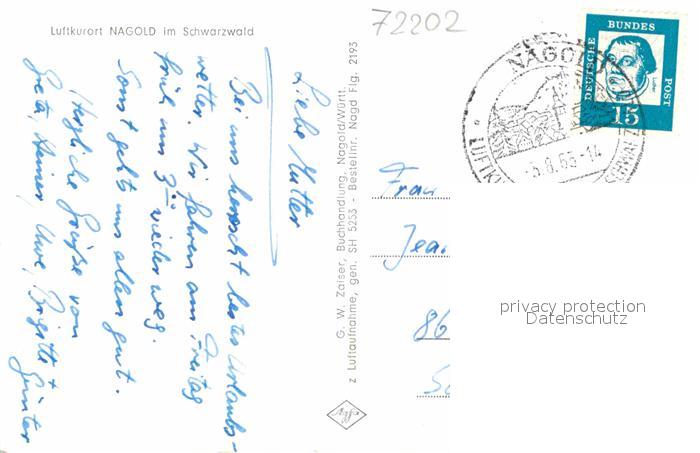 Luftkurort NAGOLD im Schwarzwald
72202
Liebe Mutter
Bei uns herrscht bestes Urlaubs-
wetter. Wir fahren am Freitag
früh um 3°° wieder weg.
Sonst geht's uns allen gut.
Herzliche Grüße von
Greta, Heiner, Uwe, Brigitte +
Günter
G. W. Zaiser, Buchhandlung, Nagold/Württ.
z Luftaufnahme, gen. SH 5253 - Bestellnr. Nagd Flg. 2193
Agfa
NAGOLD
LUFTK
SCHWARZ
-5.8.63-14
DEUTSCHE
BUNDES
POST
Luther
15
Frau
Jea
86
privacy protection
Datenschutz